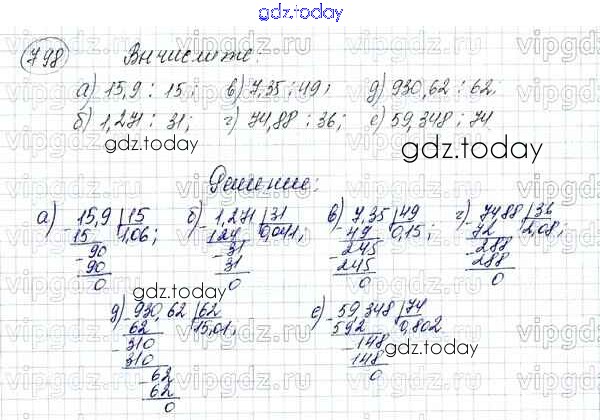 gdz.today
798 Вычислите:
а) 15,9 : 15; в) 7,35 : 49; д) 930,62 : 62;
б) 1,271 : 31; г) 74,88 : 36; е) 59,348 : 74
gdz.today
gdz.today
Решение:
а) 15,9 | 15 б) 1,271 | 31 в) 7,35 | 49 г) 74,88 | 36
- 15 1,06; - 124 0,041; - 49 0,15; - 72 2,08;
- 90 - 31 - 245 - 288
90 31 245 288
0 0 0 0
gdz.today
д) 930,62 | 62 е) 59,348 | 74
- 62 15,01; - 592 0,802
- 310 - 148
310 148
- 62 0
62
0
gdz.today
vipgdz.ru